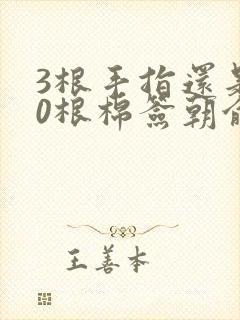 3根手指還是
0根棉簽朝俞
王善本